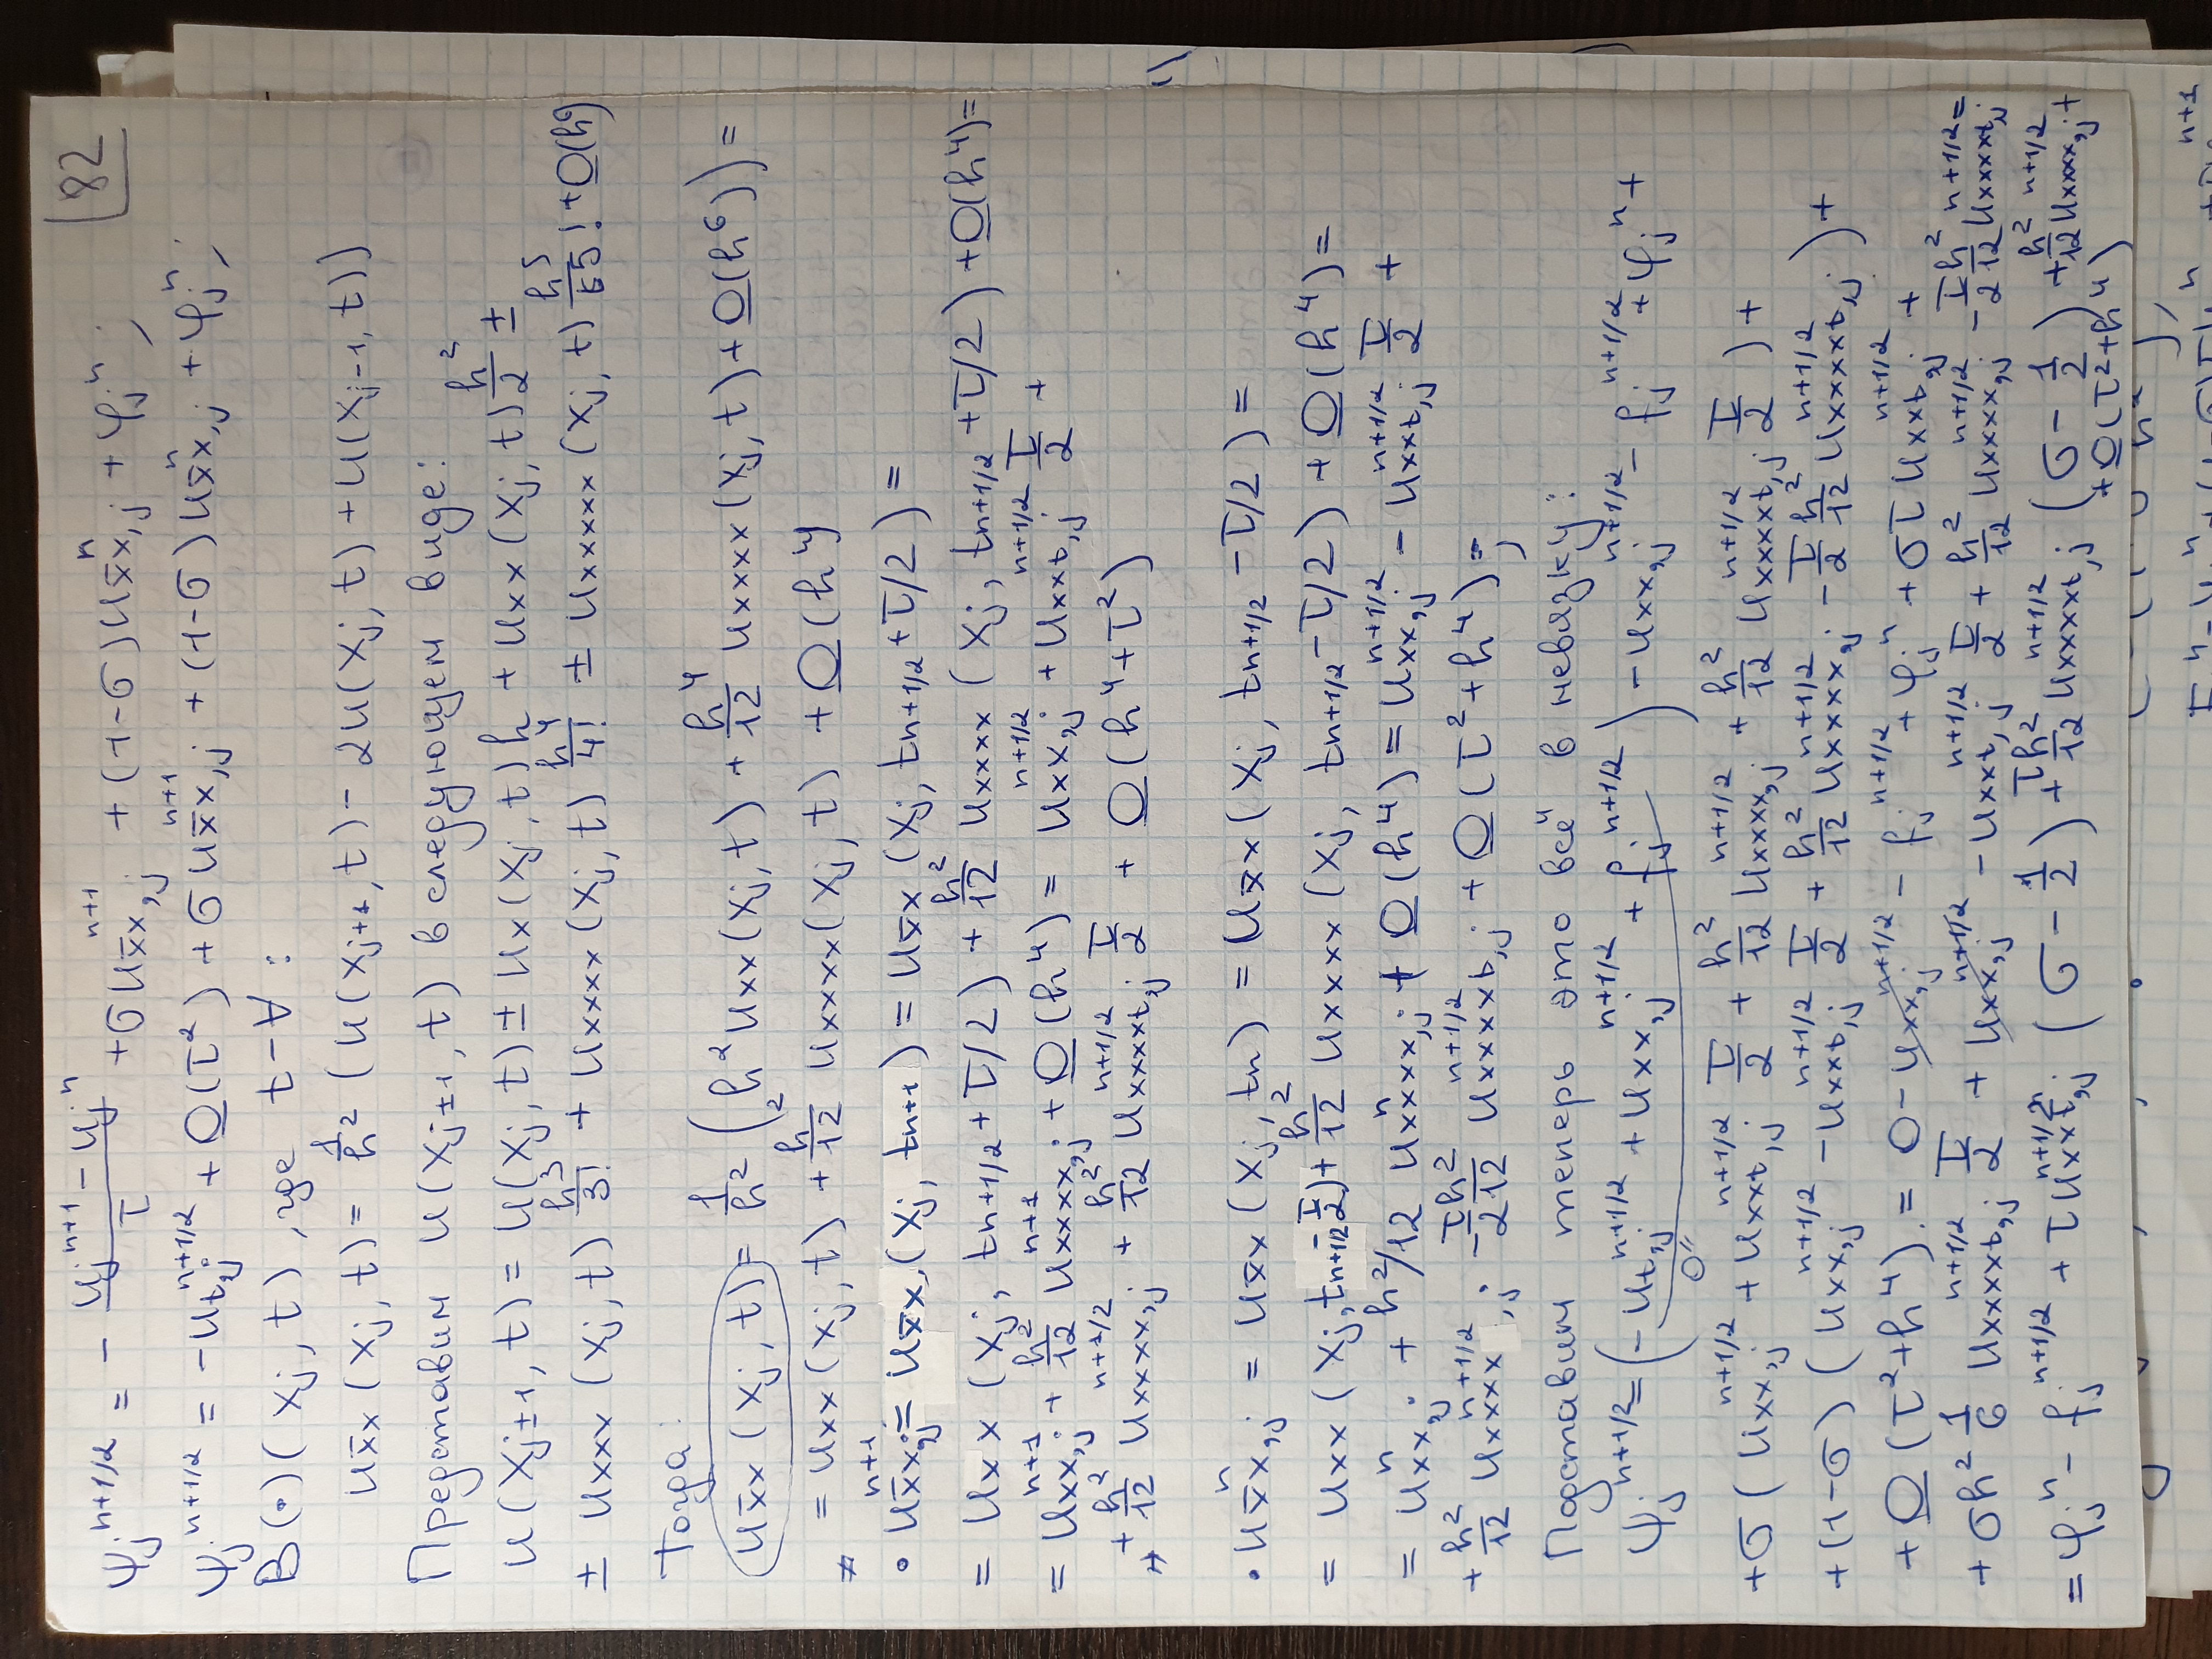 82
ψ_j^{n+1/2} = - (u_j^{n+1} - u_j^n)/τ + σ u_{x̄x,j}^{n+1} + (1-σ) u_{x̄x,j}^n + φ_j^n ;
ψ_j^{n+1/2} = -u_{t,j}^{n+1/2} + O(τ²) + σ u_{x̄x,j}^{n+1} + (1-σ) u_{x̄x,j}^n + φ_j^n ;
В (•) (x_j, t), где t - ∀ :
u_{x̄x}(x_j, t) = 1/h² (u(x_{j+1}, t) - 2u(x_j, t) + u(x_{j-1}, t))
Представим u(x_{j±1}, t) в следующем виде:
u(x_{j±1}, t) = u(x_j, t) ± u_x(x_j, t) h + u_{xx}(x_j, t) h²/2 ±
± u_{xxx}(x_j, t) h³/3! + u_{xxxx}(x_j, t) h⁴/4! ± u_{xxxxx}(x_j, t) h⁵/5! + O(h⁶)
Тогда:
u_{x̄x}(x_j, t) = 1/h² (h² u_{xx}(x_j, t) + h⁴/12 u_{xxxx}(x_j, t) + O(h⁶)) =
= u_{xx}(x_j, t) + h²/12 u_{xxxx}(x_j, t) + O(h⁴)
* • u_{x̄x,j}^{n+1} = u_{x̄x}(x_j, t_{n+1}) = u_{x̄x}(x_j, t_{n+1/2} + τ/2) =
= u_{xx}(x_j, t_{n+1/2} + τ/2) + h²/12 u_{xxxx}(x_j, t_{n+1/2} + τ/2) + O(h⁴) =
= u_{xx,j}^{n+1} + h²/12 u_{xxxx,j}^{n+1} + O(h⁴) = u_{xx,j}^{n+1/2} + u_{xxt,j}^{n+1/2} τ/2 +
* + h²/12 u_{xxxx,j}^{n+1/2} + h²/12 u_{xxxxt,j}^{n+1/2} τ/2 + O(h⁴+τ²)
• u_{x̄x,j}^n = u_{x̄x}(x_j, t_n) = u_{x̄x}(x_j, t_{n+1/2} - τ/2) =
= u_{xx}(x_j, t_{n+1/2} - τ/2) + h²/12 u_{xxxx}(x_j, t_{n+1/2} - τ/2) + O(h⁴) =
= u_{xx,j}^n + h²/12 u_{xxxx,j}^n + O(h⁴) = u_{xx,j}^{n+1/2} - u_{xxt,j}^{n+1/2} τ/2 +
+ h²/12 u_{xxxx,j}^{n+1/2} - τ/2 h²/12 u_{xxxxt,j}^{n+1/2} + O(τ²+h⁴) =;
Подставим теперь это всё в невязку:
ψ_j^{n+1/2} = (-u_{t,j}^{n+1/2} + u_{xx,j}^{n+1/2} + f_j^{n+1/2}) - u_{xx,j}^{n+1/2} - f_j^{n+1/2} + φ_j^n +
0"
+ σ (u_{xx,j}^{n+1/2} + u_{xxt,j}^{n+1/2} τ/2 + h²/12 u_{xxxx,j}^{n+1/2} + h²/12 u_{xxxxt,j}^{n+1/2} τ/2) +
+ (1-σ) (u_{xx,j}^{n+1/2} - u_{xxt,j}^{n+1/2} τ/2 + h²/12 u_{xxxx,j}^{n+1/2} - τ/2 h²/12 u_{xxxxt,j}^{n+1/2}) +
+ O(τ²+h⁴) = 0 - u_{xx,j}^{n+1/2} - f_j^{n+1/2} + φ_j^n + στ u_{xxt,j}^{n+1/2} +
+ σh² 1/6 u_{xxxxt,j}^{n+1/2} τ/2 + u_{xx,j}^{n+1/2} - u_{xxt,j}^{n+1/2} τ/2 + h²/12 u_{xxxx,j}^{n+1/2} - τ/2 h²/12 u_{xxxxt,j}^{n+1/2} =
= φ_j^n - f_j^{n+1/2} + τ u_{xxt,j}^{n+1/2} (σ - 1/2) + τh²/12 u_{xxxxt,j}^{n+1/2} (σ - 1/2) + h²/12 u_{xxxx,j}^{n+1/2} +
+ O(τ²+h⁴)